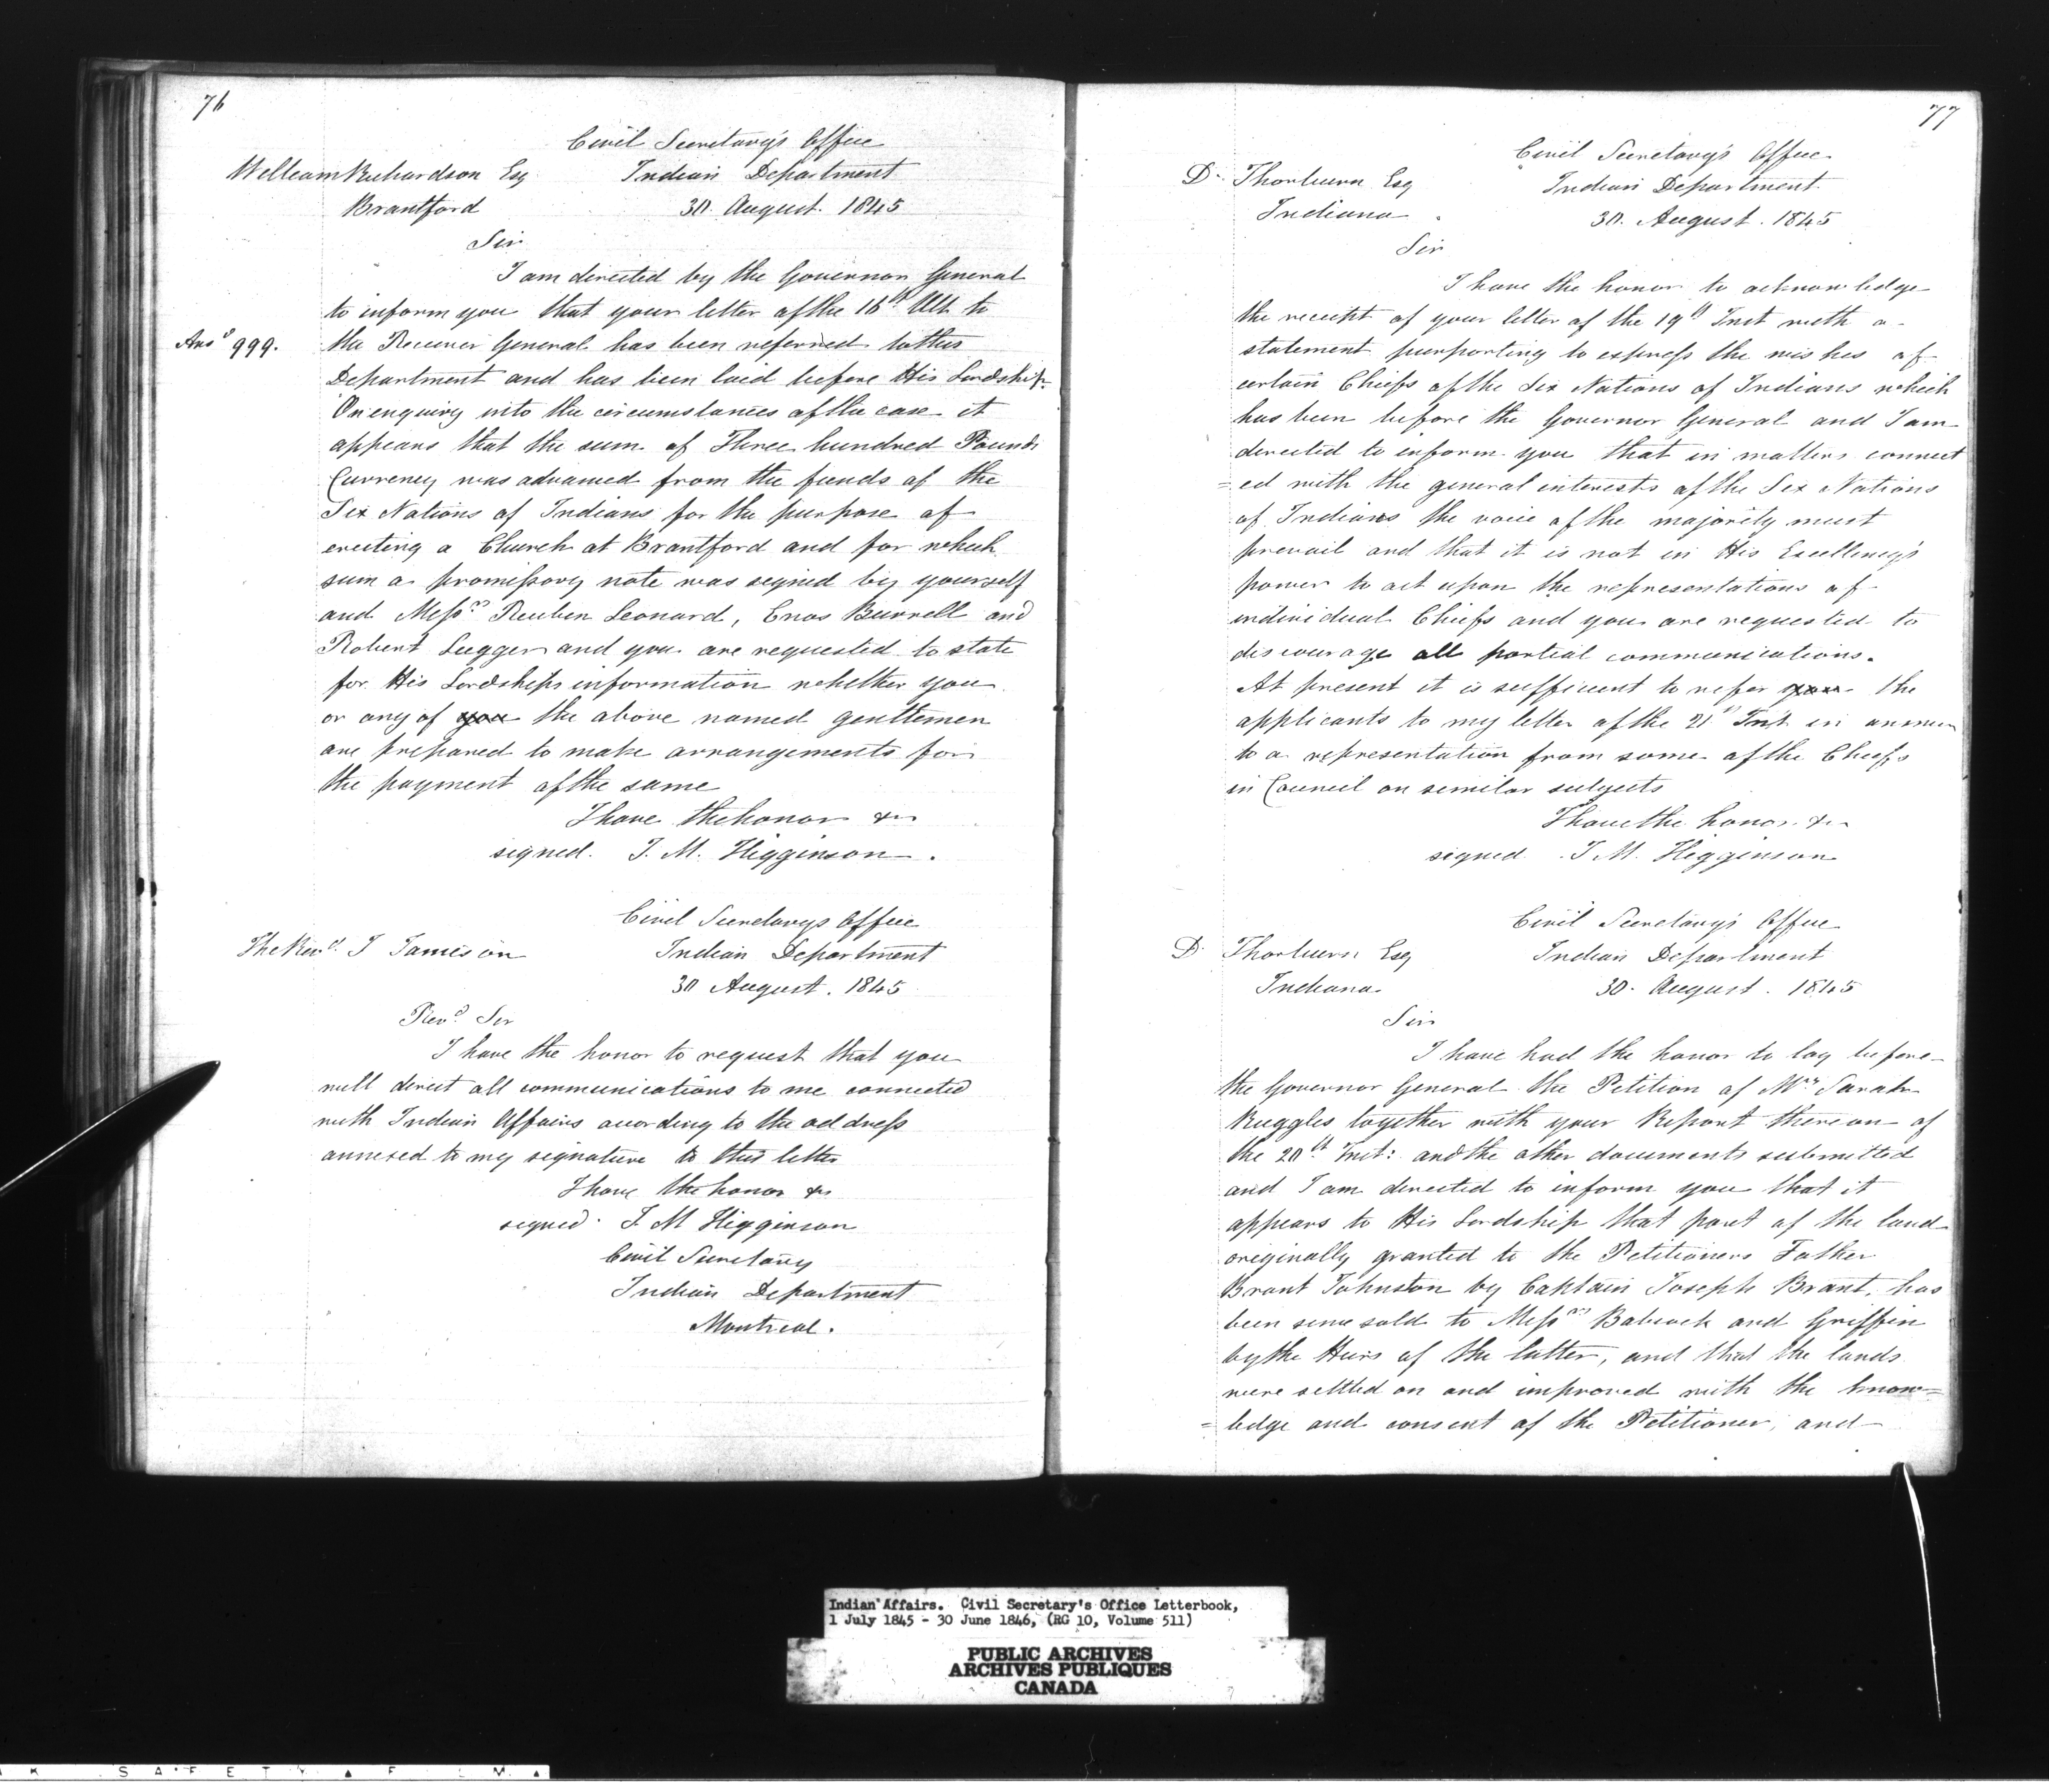 76
Civil Secretary's Office
William Richardson Esq
Indian Department
Brantford
30 August. 1845
Sir
I am directed by the Governor General
to inform you that your letter of the 16th Ult to
Ansd 999.
the Receiver General has been referred to this
Department and has been laid before His Lordship.
On enquiry into the circumstances of the case it
appears that the sum of Three hundred Pounds
Currency was advanced from the funds of the
Six Nations of Indians for the purpose of
erecting a Church at Brantford and for which
sum a promissory note was signed by yourself
and Messrs Reuben Leonard, Enos Bunnell and
Robert Lugger and you are requested to state
for His Lordships information whether you
or any of you the above named gentlemen
are prepared to make arrangements for
the payment of the same
I have the honor &c
signed. J. M. Higginson.
Civil Secretarys Office
The Revd. J Jamieson
Indian Department
30 August. 1845
Revd. Sir
I have the honor to request that you
will direct all communications to me connected
with Indian Affairs according to the address
annexed to my signature to this letter
I have the honor &c
signed. J. M Higginson
Civil Secretary
Indian Department
Montreal.
77
Civil Secretary's Office
D. Thorburn Esq
Indian Department.
Indiana.
30. August. 1845
Sir
I have the honor to acknowledge
the receipt of your letter of the 19th Inst with a
statement purporting to express the wishes of
certain Chiefs of the Six Nations of Indians which
has been before the Governor General and I am
directed to inform you that in matters connect
=ed with the general interests of the Six Nations
of Indians the voice of the majority must
prevail and that it is not in His Excellency's
power to act upon the representations of
individual Chiefs and you are requested to
discourage all partial communications.
At present it is sufficient to refer you the
applicants to my letter of the 21st Inst in answer
to a representation from some of the Chiefs
in Council on similar subjects
I have the honor &c
signed. J M. Higginson
Civil Secretary's Office
D. Thorburn Esq
Indian Department
Indiana.
30. August. 1845
Sir
I have had the honor to lay before
the Governor General the Petition of Mrs Sarah
Ruggles together with your Report thereon of
the 20th Inst: and the other documents submitted
and I am directed to inform you that it
appears to His Lordship that part of the land
originally granted to the Petitioners Father
Brant Johnston by Captain Joseph Brant, has
been since sold to Messrs Babcock and Griffin
by the Heirs of the latter, and that the lands
were settled on and improved with the know=
=ledge and consent of the Petitioner, and
Indian Affairs. Civil Secretary's Office Letterbook,
1 July 1845 - 30 June 1846, (RG 10, Volume 511)
PUBLIC ARCHIVES
ARCHIVES PUBLIQUES
CANADA